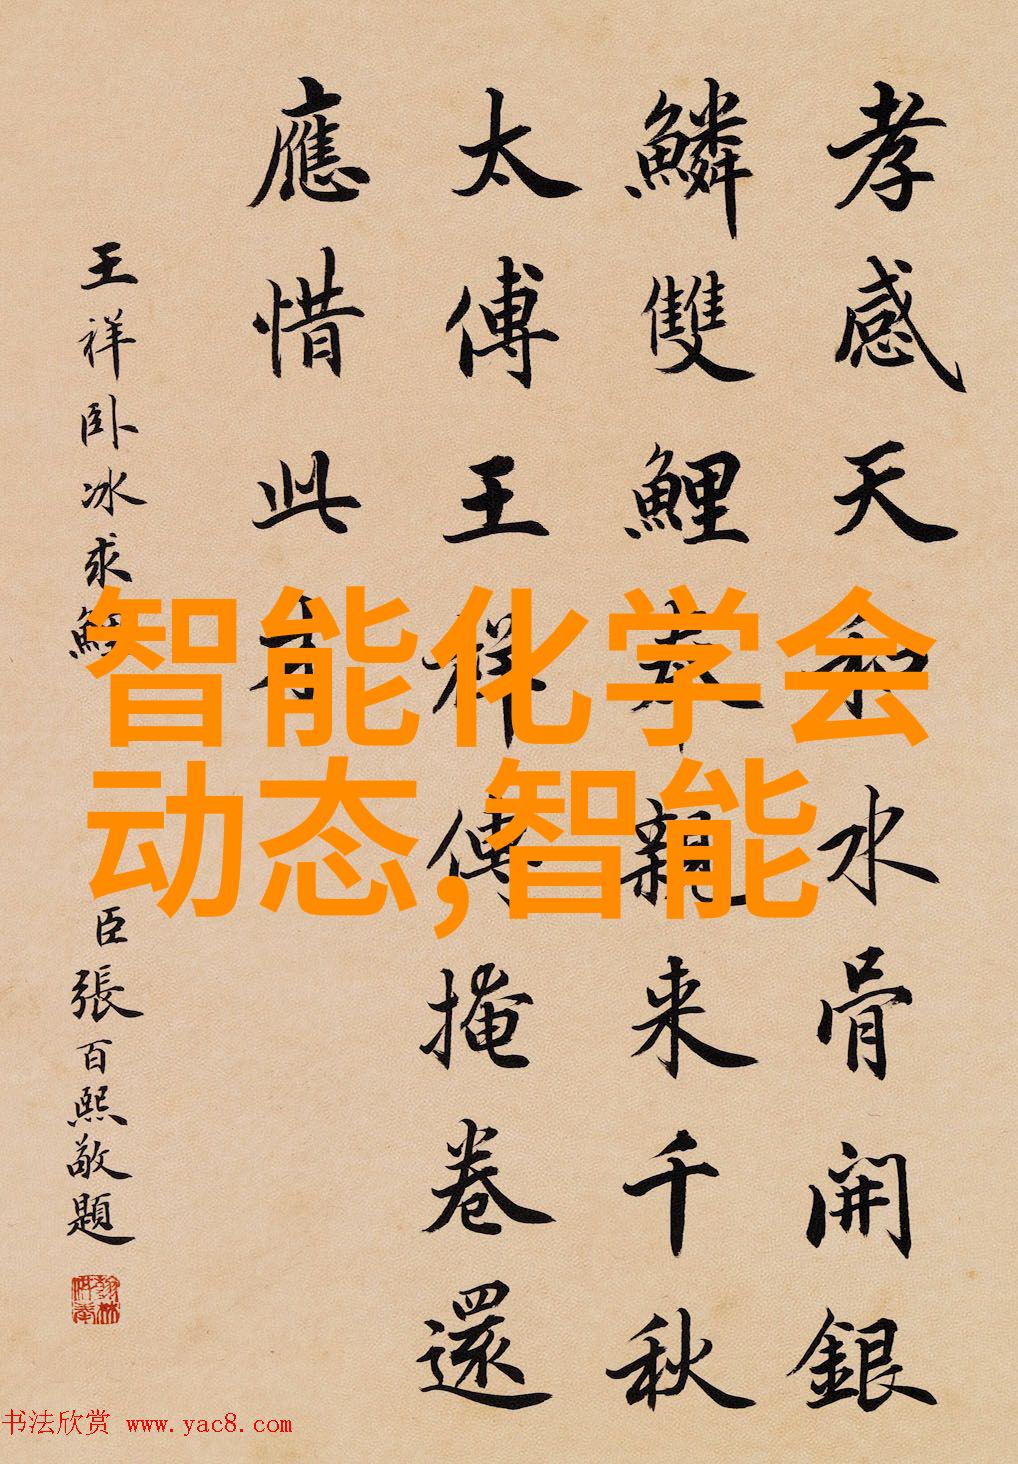 孝感天和水骨開銀
鱗雙鯉親来千秋
太傅王祥傳掩卷還
應惜此
王祥卧冰求鯉
臣張百熙敬題
智能化学会
动态,智能
书法欣赏 www.yac8.com